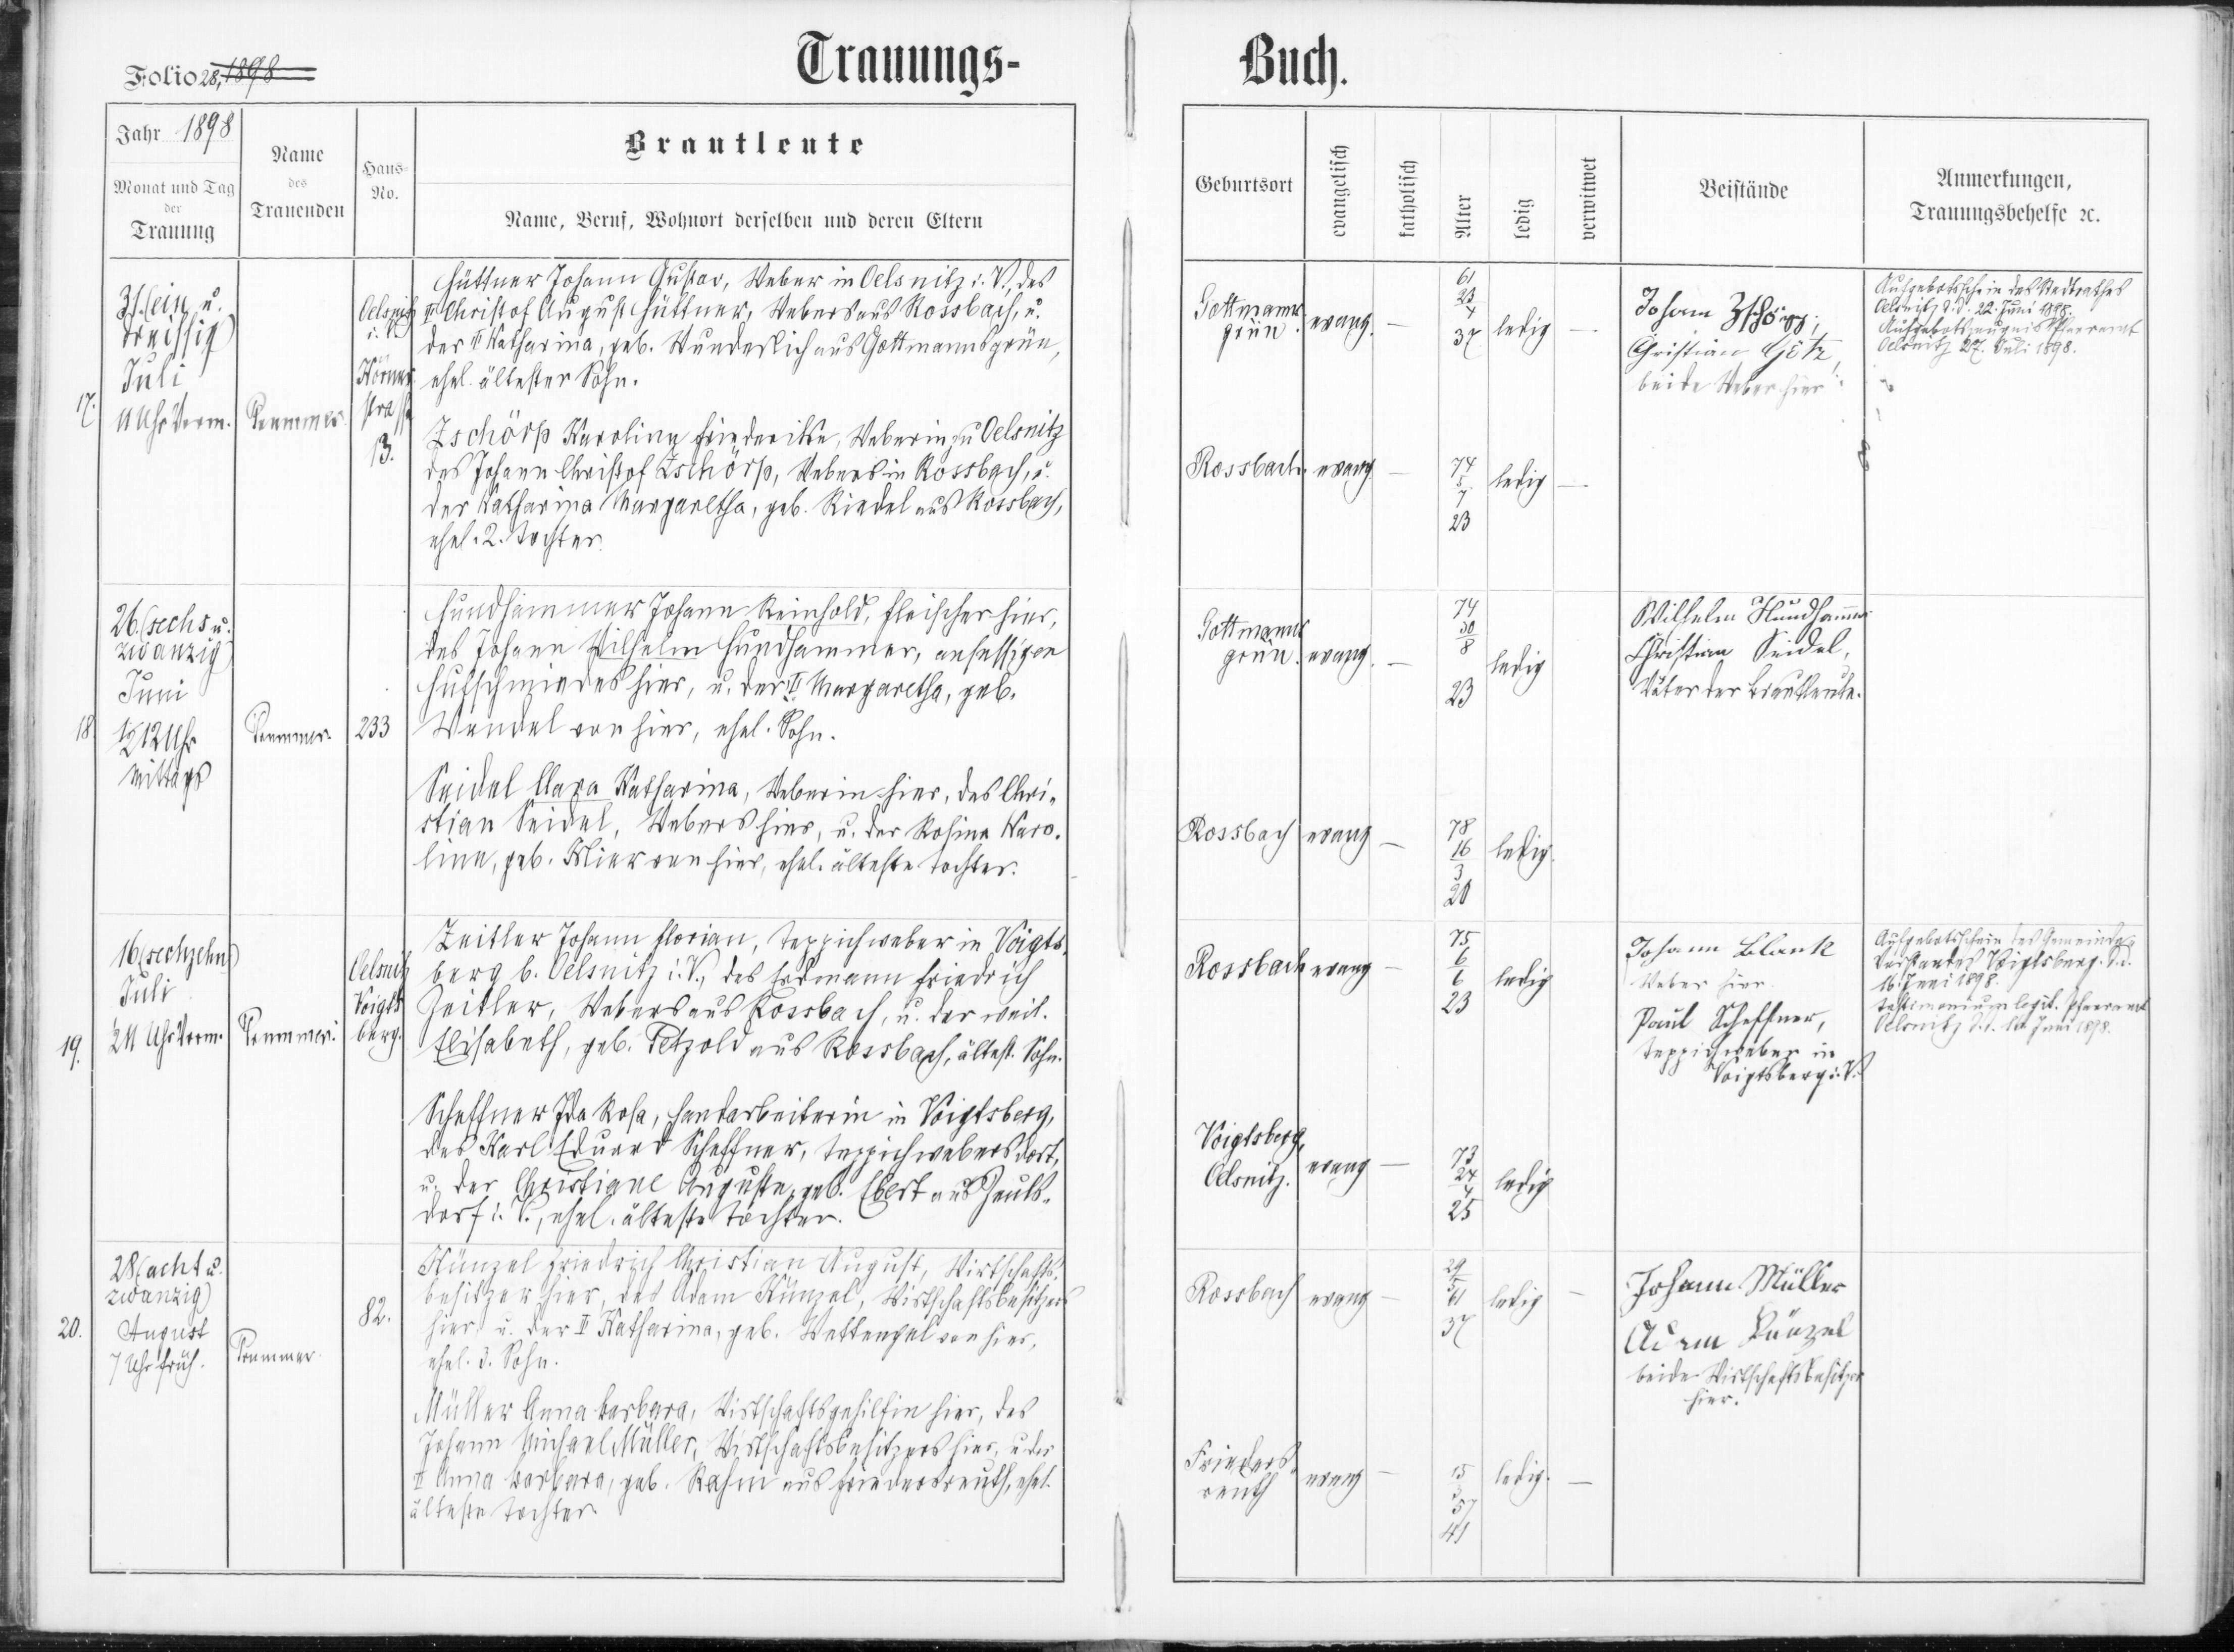 Folio 28, 1898
Trauungs-
Buch.
Jahr 1898
Monat und Tag
der
Trauung
Name
des
Trauenden
Haus-
No.
Brautleute
Name, Beruf, Wohnort derselben und deren Eltern
Geburtsort
evangelisch
katholisch
Alter
ledig
verwitwet
Beistände
Anmerkungen,
Trauungsbehelfe ꝛc.
17.
31. (ein u.
dreissig)
Juli
11 Uhr Vorm.
Oelsnitz
i. V.
Körner
strasse
13.
Hüttner Johann Gustav, Weber in Oelsnitz i. V., des
Christof August Hüttner, Webers aus Rossbach, u.
der Katharina, geb. Wunderlich aus Gottmannsgrün,
ehel. ältester Sohn.
Zschörp Karolina Friederike, Weberin zu Oelsnitz
des Johann Christof Zschörp, Webers in Rossbach, u.
der Katharina Margaretha, geb. Riedel aus Rossbach,
ehel. 2. Tochter.
Gottmanns
grün.
evang. —
61
23
4
37
ledig —
Johann Zschörp,
Christian Götz,
beide Weber hier
Aufgebotsschein des Stadtrathes
Oelsnitz d. d. 22. Juni 1898.
Aufgebotszeugnis Pfarramt
Oelsnitz 27. Juli 1898.
Rossbach evang. —
74
5
7
23
ledig —
18.
26. (sechs u.
zwanzig)
Juni
1/2 12 Uhr
Mittags
233
Hundhammer Johann Reinhold, Fleischer hier,
des Johann Wilhelm Hundhammer, ansässigen
Hufschmiedes hier, u. der II Margaretha, geb.
Wendel von hier, ehel. Sohn.
Seidel Clara Katharina, Weberin hier, des Chri-
stian Seidel, Webers hier, u. der Rosina Karo-
lina, geb. Klier von hier, ehel. älteste Tochter.
Gottmanns
grün.
evang. —
74
30
8
23
ledig
Wilhelm Hundhammer
Christian Seidel,
Väter der Brautleute.
Rossbach evang —
78
16
3
20
ledig.
19.
16 (sechzehn)
Juli
Uhr Vorm.
Oelsnitz
Voigts
berg.
Zeitler Johann Florian, Teppichweber in Voigts-
berg b. Oelsnitz i. V., des Erdmann Friedrich
Zeitler, Webers aus Rossbach, u. der weil.
Elisabeth, geb. Petzold aus Rossbach, ältest. Sohn.
Scheffner Ida Rosa, Handarbeiterin in Voigtsberg,
des Karl Eduard Scheffner, Teppichwebers dort,
u. der Christiane Auguste, geb. Ebert aus
dorf i. V., ehel. älteste Tochter.
Rossbach evang —
75
6
6
23
ledig
Johann Blank
Weber hier.
Paul Scheffner,
Teppichweber in
Voigtsberg i. V.
Aufgebotsschein des Gemeinde
Vorstandes Voigtsberg. d. d.
16. Juni 1898.
Testimonium legit. Pfarramt
Oelsnitz d. d. Juni 1898.
Voigtsberg,
Oelsnitz.
evang —
73
27
4
25
ledig
20.
28 (acht u.
zwanzig)
August
7 Uhr früh.
82.
Künzel Friedrich Christian August, Wirtschafts-
besitzer hier, des Adam Künzel, Wirtschaftsbesitzers
hier u. der II Katharina, geb. Wettengel von hier,
ehel. 3. Sohn.
Müller Anna Barbara, Wirtschaftsgehilfin hier, des
Johann Michael Müller, Wirtschaftsbesitzers hier, u. der
II Anna Barbara, geb. Rahm aus Friedersreuth, ehel.
älteste Tochter.
Rossbach evang —
29
5
61
37
ledig —
Johann Müller
Adam Künzel
beide Wirtschaftsbesitzer
hier.
Frieders-
reuth
evang —
15
3
57
41
ledig. —